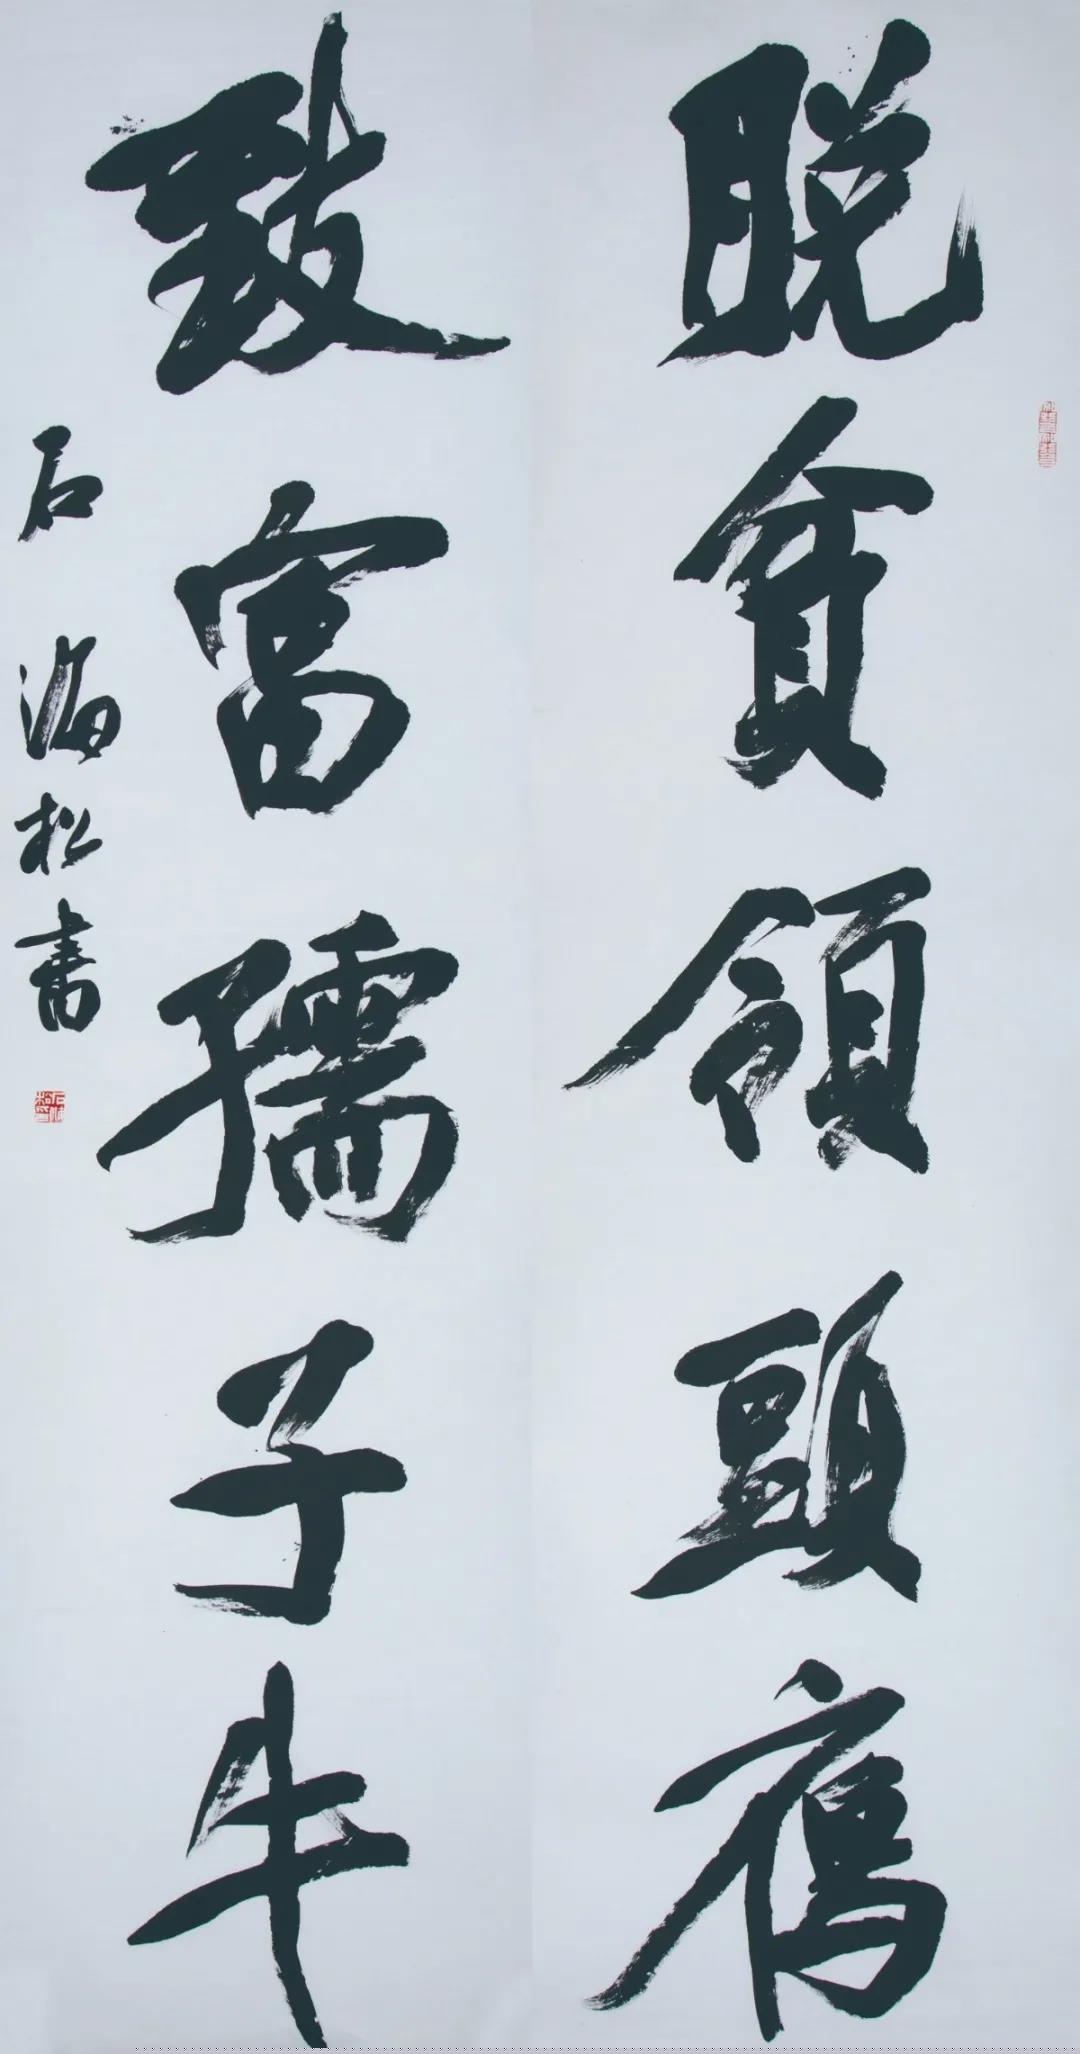 脱貧領頭鴈
致富孺子牛
石海松書